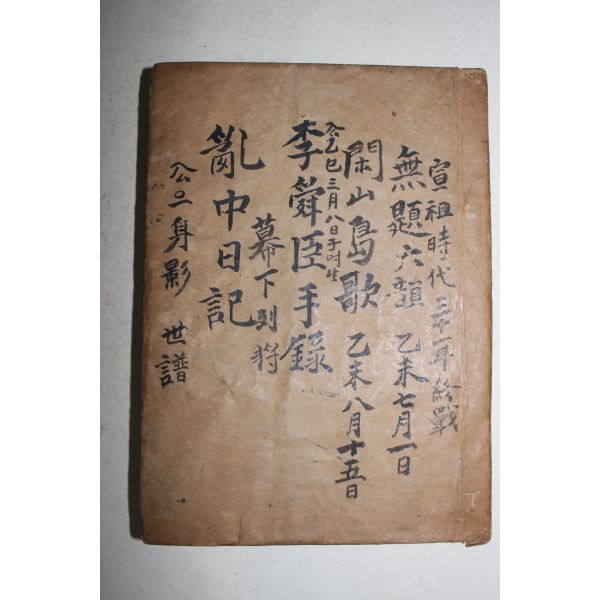 宣祖時代 三十一年 終戰
無題六韻 乙未七月一日
閑山島歌 乙未八月十五日
公乙巳三月八日子時生
李舜臣手錄
幕下列將
亂中日記
公의身影 世譜